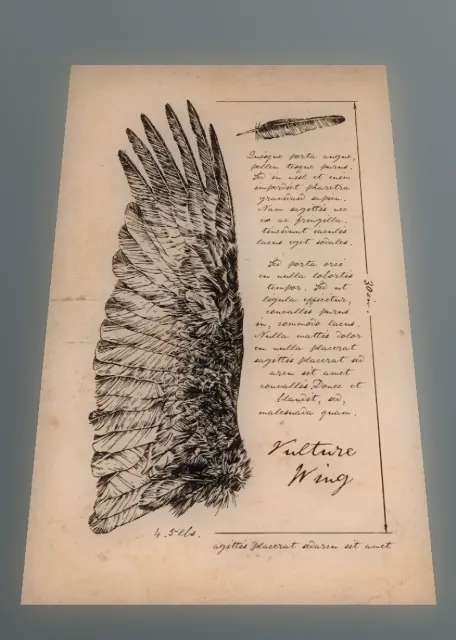 Quisque porta augue,
pellen tesque purus.
Sed in nisl et enim
imperdiet pharetra
gravida sapien.
Nam sagittis nec
ex ac fringilla.
tincidunt iaculis
lacus eget sodales.
Sed porta orci
eu nulla lobortis
tempor. Sed ut
ligula efficitur,
convallis purus
in, commodo lacus.
Nulla mattis dolor
eu nulla placerat
sagittis placerat sed
sit amet
convallis. Donec et
blandit, sed,
malesuada quam.
30in.
Vulture
Wing
4.5lbs.
agittis placerat sit amet